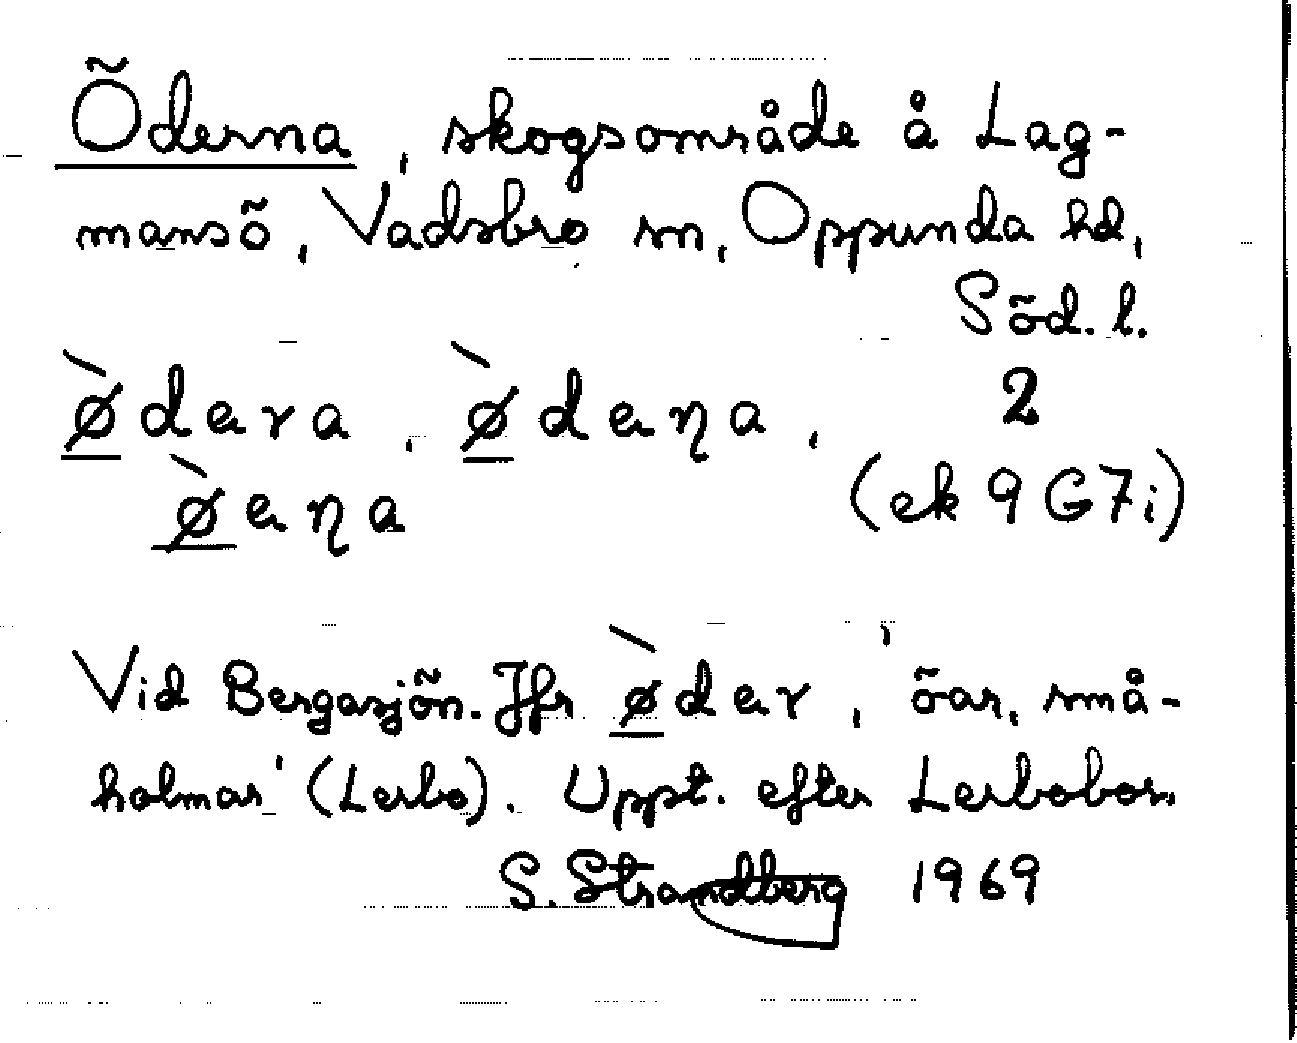 Öderna, skogsområde å Lag-
mansö, Vadsbro sn, Oppunda hd,
Söd. l.
ø̀dera, ø̀deṇa, 2
ø̀eṇa (ek 9 G7i)
Vid Bergasjön. Jfr ø̀der, 'öar, små-
holmar' (Lerbo). Uppt. efter Lerbobor.
S. Strandberg 1969